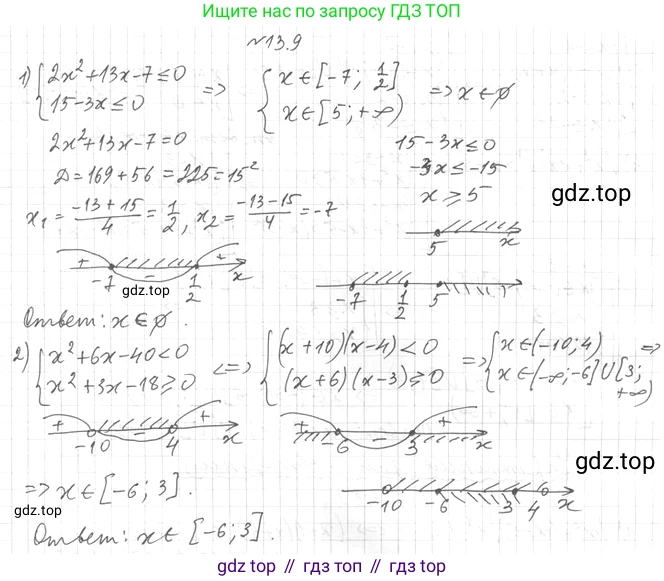 Ищите нас по запросу ГДЗ ТОП
№13.9
1) { 2x² + 13x - 7 ≤ 0
15 - 3x ≤ 0
=> { x ∈ [-7; 1/2]
x ∈ [5; +∞)
=> x ∈ ∅
2x² + 13x - 7 = 0
D = 169 + 56 = 225 = 15²
x₁ = (-13 + 15)/4 = 1/2, x₂ = (-13 - 15)/4 = -7
15 - 3x ≤ 0
-3x ≤ -15
x ≥ 5
gdz.top
5 x
+ -7 - 1/2 + x
gdz.top
-7 1/2 5
Ответ: x ∈ ∅.
2) { x² + 6x - 40 < 0
x² + 3x - 18 ≥ 0
<=> { (x + 10)(x - 4) < 0
(x + 6)(x - 3) ≥ 0
=> { x ∈ (-10; 4)
x ∈ (-∞; -6] U [3; +∞)
=>
+ -10 - 4 + x
+ -6 - 3 + x
gdz.top
=> x ∈ [-6; 3].
-10 -6 3 4 x
Ответ: x ∈ [-6; 3].
gdz.top // гдз.топ // gdz.top // гдз.топ